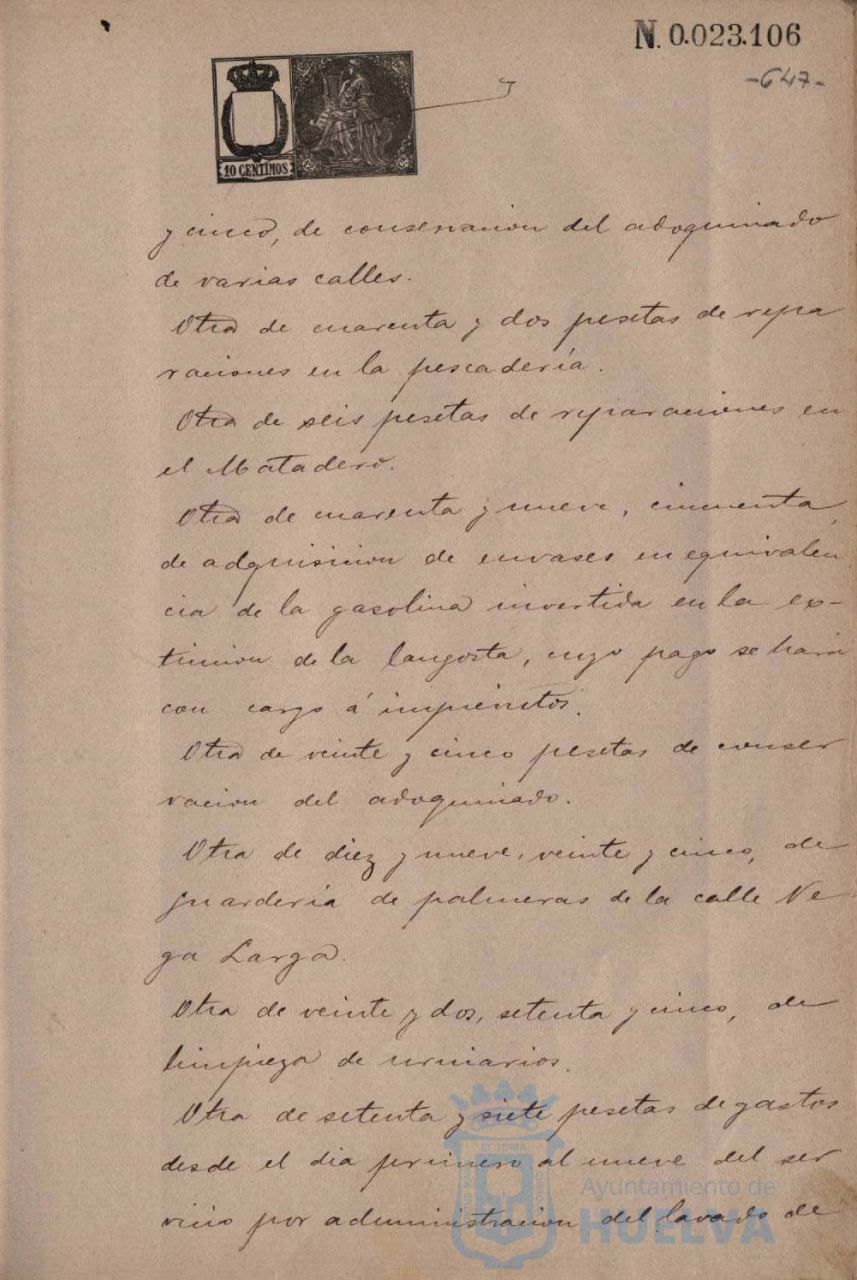 N. 0.023.106
-647-
10 CENTIMOS
y cinco, de conservacion del adoquinado
de varias calles.
Otra de cuarenta y dos pesetas de repa
raciones en la pescadería.
Otra de seis pesetas de reparaciones en
el Matadero.
Otra de cuarenta y nueve, cincuenta,
de adquisicion de envases en equivalen
cia de la gasolina invertida en la ex-
tincion de la langosta, cuyo pago se hará
con cargo á imprevistos.
Otra de veinte y cinco pesetas de conser
vacion del adoquinado.
Otra de diez y nueve, veinte y cinco, de
guardería de palmeras de la calle Ve
ga Larga.
Otra de veinte y dos, setenta y cinco, de
limpieza de urinarios.
Otra de setenta y siete pesetas de gastos
desde el dia primero al nueve del ser
vicio por administracion del lavado de
Ayuntamiento de
HUELVA